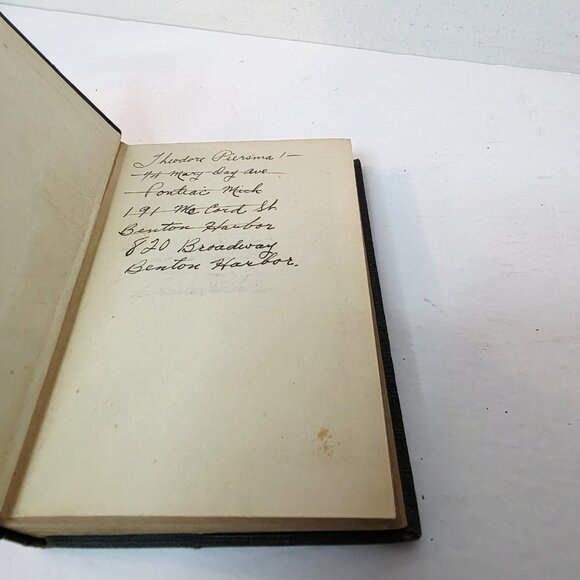 Theodore Piersma!—
44 Mary Day Ave
Pontiac Mich
191 Mc Cord St
Benton Harbor
820 Broadway
Benton Harbor.